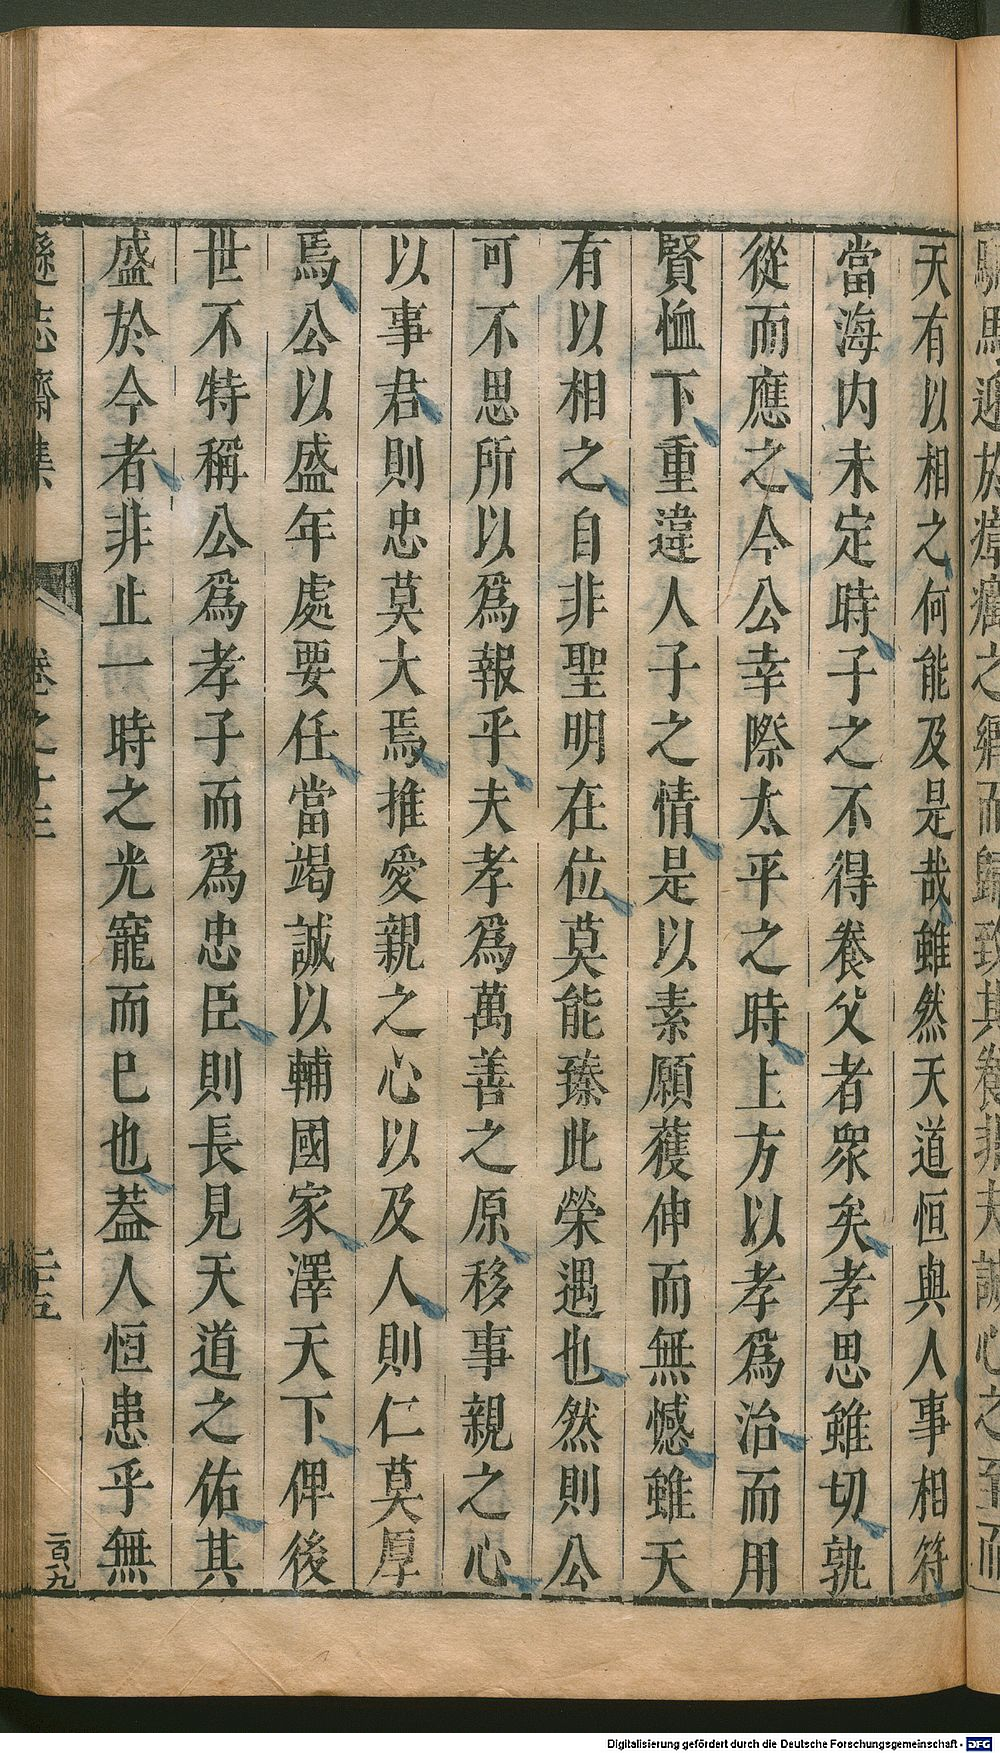 天有以相之何能及是哉雖然天道恒與人事相符
當海內未定時子之不得養父者眾矣孝思雖切孰
從而應之今公幸際太平之時上方以孝爲治而用
賢恤下重違人子之情是以素願獲伸而無憾雖天
有以相之自非聖明在位莫能臻此榮遇也然則公
可不思所以爲報乎夫孝爲萬善之原移事親之心
以事君則忠莫大焉推愛親之心以及人則仁莫厚
焉公以盛年處要任當竭誠以輔國家澤天下俾後
世不特稱公爲孝子而爲忠臣則長見天道之佑其
盛於今者非止一時之光寵而已也葢人恒患乎無
遜志齋集
卷之十三
二十五
二百九
Digitalisierung gefördert durch die Deutsche Forschungsgemeinschaft - DFG